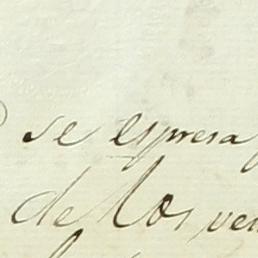 se espresa
de los ven